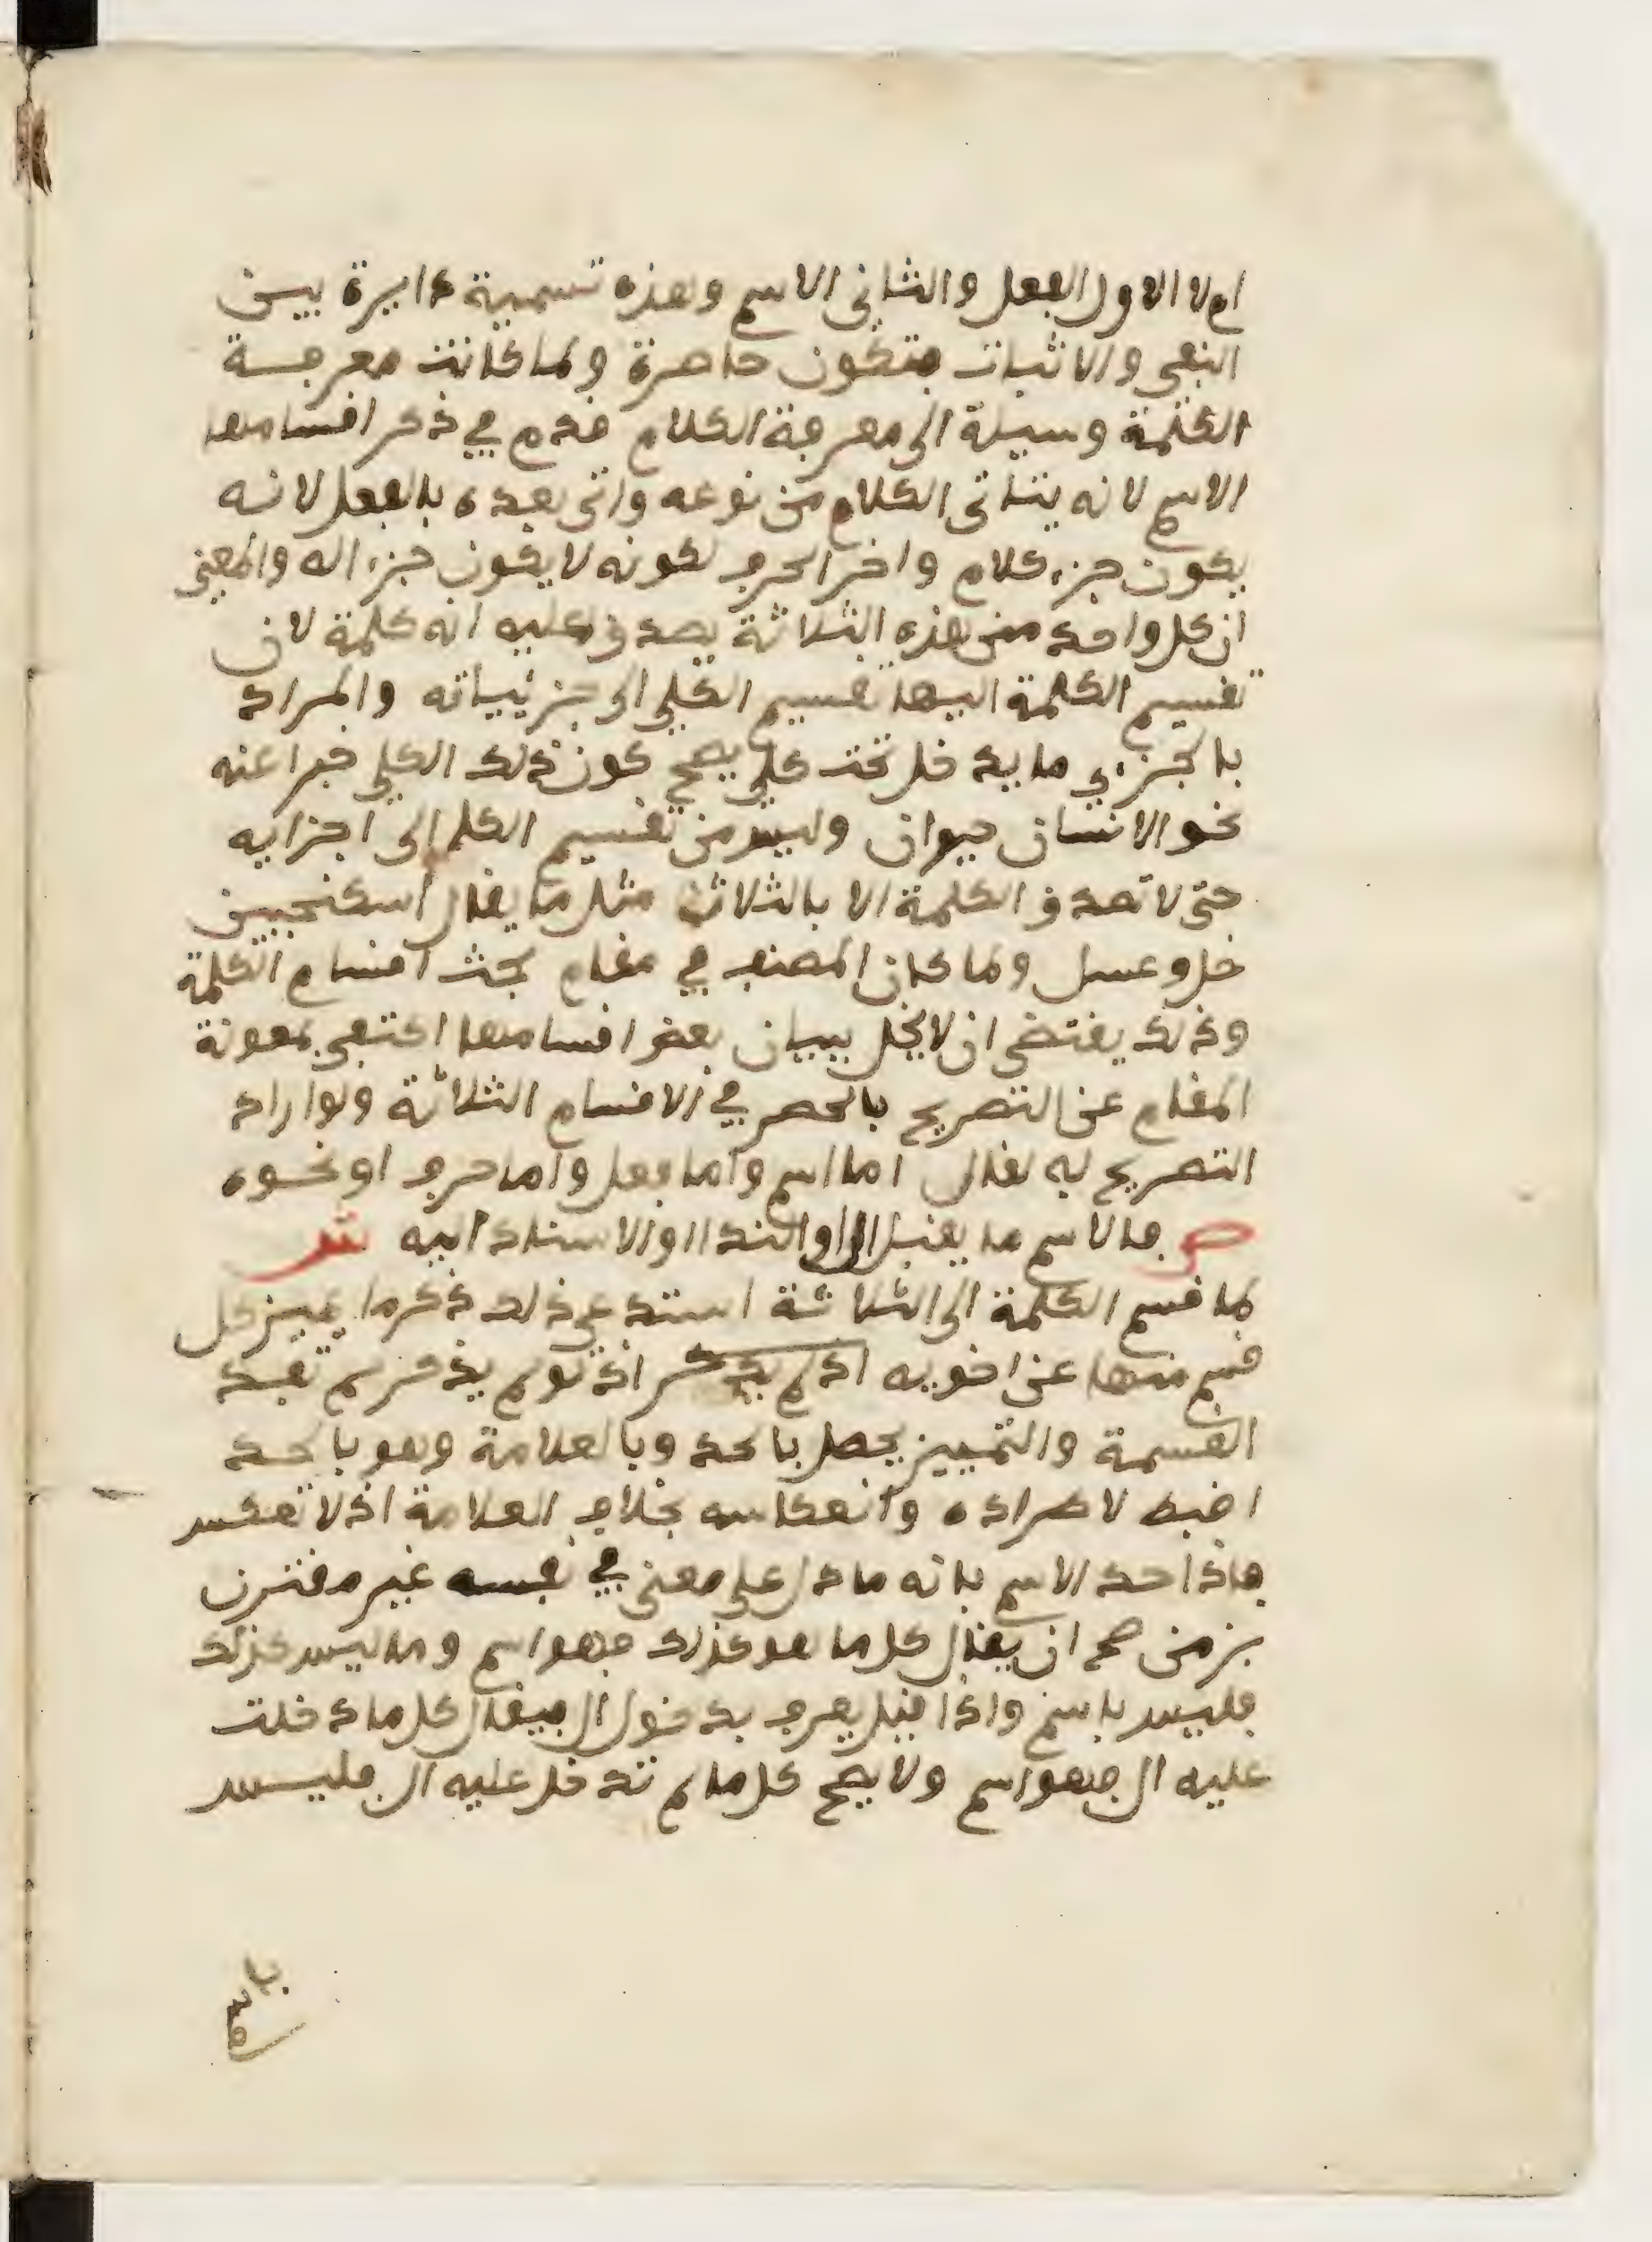 ام لا الاول الفعل والثاني الاسم وهذه تسمية دايرة بين
النفي والاثبات فتكون حاصرة ولما كانت معرفة
الكلمة وسيلة الى معرفة الكلام قدم في ذكر اقسامها
الاسم لانه يتاتى الكلام من نوعه واتى بعده بالفعل لانه
يكون جزء كلام واخر الحرف لكونه لا يكون جزءا له والمعنى
ان كل واحد من هذه الثلاثة يصدق عليه انه كلمة لان
تقسيم الكلمة اليها تقسيم الكلي الى جزئيياته والمراد
بالجزءي ما يدخل تحت كلي يصح كون ذلك الكلي خبرا عنه
نحو الانسان حيوان وليس من تقسيم الكل الى اجزايه
حتى لا تصدق الكلمة الا بالثلاث مثل ما يقال اسكنجبين
خل وعسل ولما كان المصنف في مقام بحث اقسام الكلمة
وذلك يقتضي ان لا يخل ببيان بعض اقسامها اكتفى بمعونة
المقام عن التصريح بالحصر في الاقسام الثلاثة ولو اراد
التصريح به لقال اما اسم واما فعل واما حرف او نحوه
ص فالاسم ما يقبل ال او الندا او الاسناد اليه ش
لما قسم الكلمة الى الثلاثة استدعى ذلك ذكر ما يميز كل
قسم منها عن اخويه اذ لم يذكر اذ لو لم يذكر لم تفد
القسمة والتمييز يحصل بالحد وبالعلامة وهو بالحد
اضبط لاطراده وانعكاسه بخلاف العلامة اذ لا تعكس
فاذا حد الاسم بانه ما دل على معنى في نفسه غير مقترن
بزمن صح ان يقال كل ما هو كذلك فهو اسم وما ليس كذلك
فليس باسم واذا قيل يعرف بدخول ال فيقال كل ما دخلت
عليه ال فهو اسم ولا يصح كل ما لم تدخل عليه ال فليس
باسم